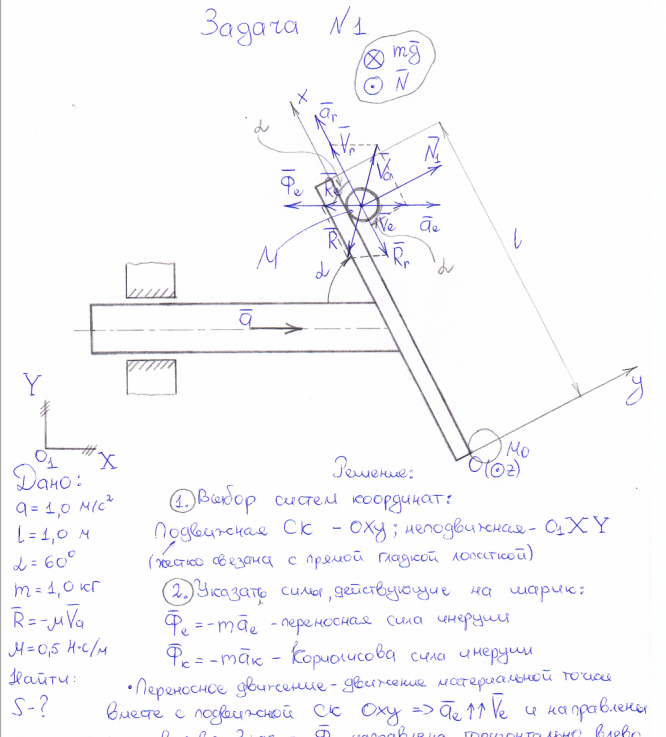 Задача N1
⊗ mg̅
⊙ N̅
x
a̅r
V̅r
α
V̅a
N̅1
Φ̅e
R̅e
V̅e
a̅e
M
R̅
R̅r
α
α
l
a̅
y
Y
M0
O(⊙z)
O1 X
Дано:
a = 1,0 м/с²
l = 1,0 м
α = 60°
m = 1,0 кг
R̅ = -μV̅a
μ = 0,5 Н·с/м
Найти:
S - ?
Решение:
1. Выбор систем координат:
Подвижная СК - Oxy; неподвижная - O1XY
(жестко связана с прямой гладкой лопаткой)
2. Указать силы, действующие на шарик:
Φ̅e = -ma̅e - переносная сила инерции
Φ̅к = -ma̅к - Кориолисова сила инерции
• Переносное движение - движение материальной точки
вместе с подвижной СК Oxy => a̅e ↑↑ V̅e и направлены